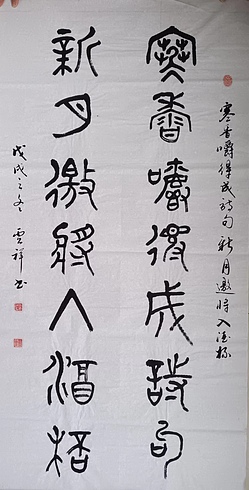 寒香嚼得成诗句新月邀将入酒杯
寒香嚼得成詩句
新月邀將入酒桮
戊戌之冬 雲祥书